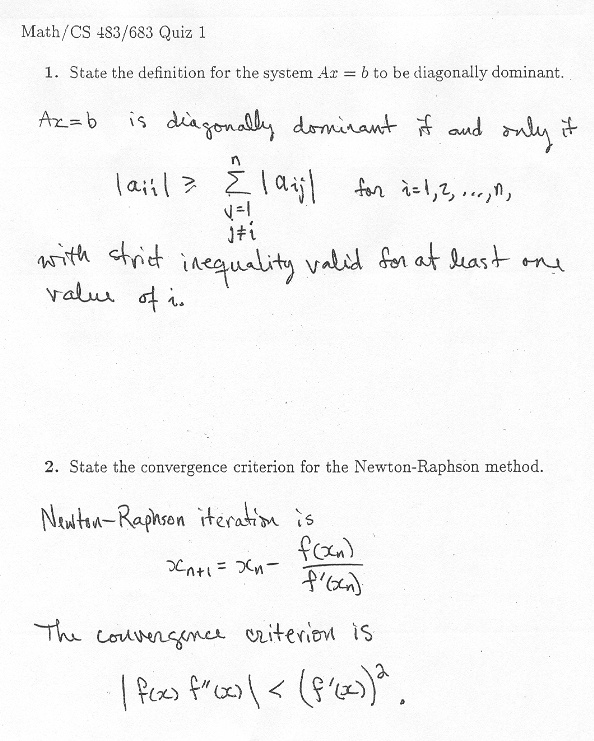 Math/CS 483/683 Quiz 1
1. State the definition for the system Ax = b to be diagonally dominant.
Ax=b is diagonally dominant if and only if
|aii| ≥ n∑j=1 j≠i |aij| for i=1,2,...,n,
with strict inequality valid for at least one
value of i.
2. State the convergence criterion for the Newton-Raphson method.
Newton-Raphson iteration is
xn+1 = xn - f(xn)/f'(xn)
The convergence criterion is
|f(x) f"(x)| < (f'(x))².